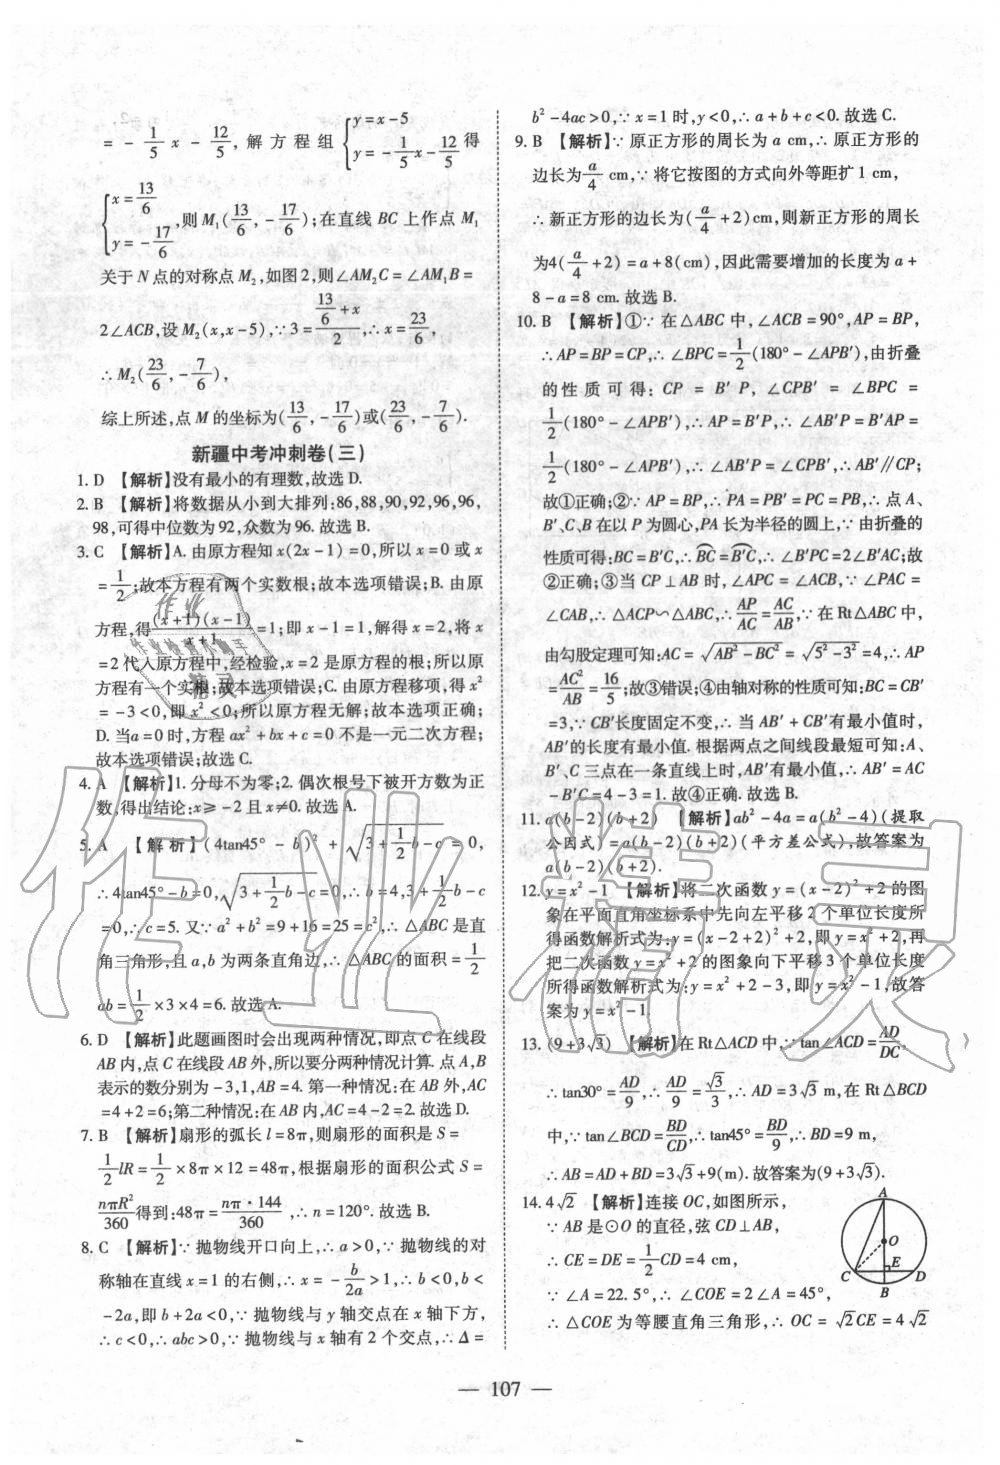 = -1/5x - 12/5, 解方程组{y=x-5 y=-1/5x-12/5 得
{x=13/6 y=-17/6, 则 M₁(13/6, -17/6); 在直线 BC 上作点 M₁
关于 N 点的对称点 M₂, 如图 2, 则∠AM₂C=∠AM₁B=
2∠ACB, 设 M₂(x, x-5), ∵3=(13/6+x)/2, ∴x=23/6,
∴M₂(23/6, -7/6),
综上所述, 点 M 的坐标为(13/6, -17/6)或(23/6, -7/6).
新疆中考冲刺卷(三)
1. D 【解析】没有最小的有理数, 故选 D.
2. B 【解析】将数据从小到大排列: 86,88,90,92,96,96,
98, 可得中位数为 92, 众数为 96. 故选 B.
3. C 【解析】A. 由原方程知 x(2x-1)=0, 所以 x=0 或 x
=1/2; 故本方程有两个实数根; 故本选项错误; B. 由原
方程, 得(x+1)(x-1)/(x+1)=1; 即 x-1=1, 解得 x=2, 将 x
=2 代入原方程中, 经检验, x=2 是原方程的根; 所以原
方程有一个实根; 故本选项错误; C. 由原方程移项, 得 x²
=-3<0, 即 x²<0; 所以本方程无解; 故本选项正确;
D. 当a=0时, 方程 ax²+bx+c=0 不是一元二次方程;
故本选项错误; 故选 C.
4. A 【解析】1. 分母不为零; 2. 偶次根号下被开方数为正
数, 得出结论: x≥-2 且 x≠0. 故选 A.
5. A 【解析】(4tan45°-b)²+√(3+1/2b-c)=0,
∴4tan45°-b=0, √(3+1/2b-c)=0, ∴b=4, 3+1/2b-c
=0, ∴c=5. 又∵a²+b²=9+16=25=c², ∴△ABC 是直
角三角形, 且 a, b 为两条直角边, ∴△ABC 的面积=1/2
ab=1/2×3×4=6. 故选 A.
6. D 【解析】此题画图时会出现两种情况, 即点 C 在线段
AB 内, 点 C 在线段 AB 外, 所以要分两种情况计算. 点 A, B
表示的数分别为-3, 1, AB=4. 第一种情况: 在 AB 外, AC
=4+2=6; 第二种情况: 在 AB 内, AC=4-2=2. 故选 D.
7. B 【解析】扇形的弧长 l=8π, 则扇形的面积是 S=
1/2lR=1/2×8π×12=48π, 根据扇形的面积公式 S=
nπR²/360得到: 48π=nπ·144/360, ∴n=120°. 故选 B.
8. C 【解析】∵抛物线开口向上, ∴a>0, ∵抛物线的对
称轴在直线 x=1 的右侧, ∴x=-b/2a>1, ∴b<0, b<
-2a, 即 b+2a<0, ∵抛物线与 y 轴交点在 x 轴下方,
∴c<0, ∴abc>0, ∵抛物线与 x 轴有 2 个交点, ∴Δ=
b²-4ac>0, ∵x=1 时, y<0, ∴a+b+c<0. 故选 C.
9. B 【解析】∵原正方形的周长为 a cm, ∴原正方形的
边长为a/4 cm, ∵将它按图的方式向外等距扩 1 cm,
∴新正方形的边长为(a/4+2)cm, 则新正方形的周长
为4(a/4+2)=a+8(cm), 因此需要增加的长度为 a+
8-a=8 cm. 故选 B.
10. B 【解析】①∵在△ABC 中, ∠ACB=90°, AP=BP,
∴AP=BP=CP, ∴∠BPC=1/2(180°-∠APB′), 由折叠
的性质可得: CP=B′P, ∠CPB′=∠BPC=
1/2(180°-∠APB′), ∴AP=B′P, ∴∠AB′P=∠B′AP=
1/2(180°-∠APB′), ∴∠AB′P=∠CPB′, ∴AB′∥CP;
故①正确; ②∵AP=BP, ∴PA=PB′=PC=PB, ∴点 A、
B′、C、B 在以 P 为圆心, PA 长为半径的圆上, ∵由折叠的
性质可得: BC=B′C, ∴BC=B′C, ∴∠B′PC=2∠B′AC; 故
②正确; ③当 CP⊥AB 时, ∠APC=∠ACB, ∵∠PAC=
∠CAB, ∴△ACP∽△ABC, ∴AP/AC=AC/AB, ∵在 Rt△ABC 中,
由勾股定理可知: AC=√(AB²-BC²)=√(5²-3²)=4, ∴AP
=AC²/AB=16/5; 故③错误; ④由轴对称的性质可知: BC=CB′
=3, ∵CB′长度固定不变, ∴当 AB′+CB′有最小值时,
AB′的长度有最小值. 根据两点之间线段最短可知: A、
B′、C 三点在一条直线上时, AB′有最小值, ∴AB′=AC
-B′C=4-3=1. 故④正确. 故选 B.
11. a(b-2)(b+2) 【解析】ab²-4a=a(b²-4)(提取
公因式)=a(b-2)(b+2)(平方差公式), 故答案为
a(b-2)(b+2).
12. y=x²-1 【解析】将二次函数 y=(x-2)²+2 的图
象在平面直角坐标系中先向左平移 2 个单位长度所
得函数解析式为: y=(x-2+2)²+2, 即 y=x²+2, 再
把二次函数 y=x²+2 的图象向下平移 3 个单位长度
所得函数解析式为: y=x²+2-3, 即 y=x²-1, 故答
案为 y=x²-1.
13. (9+3√3) 【解析】在 Rt△ACD 中, ∵tan∠ACD=AD/DC,
∴tan30°=AD/9, ∴AD/9=√3/3, ∴AD=3√3 m, 在 Rt△BCD
中, ∵tan∠BCD=BD/CD, ∴tan45°=BD/9, ∴BD=9 m,
∴AB=AD+BD=3√3+9(m). 故答案为(9+3√3).
14. 4√2 【解析】连接 OC, 如图所示,
∵AB 是⊙O 的直径, 弦 CD⊥AB,
∴CE=DE=1/2CD=4 cm,
∵∠A=22.5°, ∴∠COE=2∠A=45°,
∴△COE 为等腰直角三角形, ∴OC=√2CE=4√2
A
O
E
C
D
B
— 107 —
作业精灵
作业
作业检查小助手
精灵